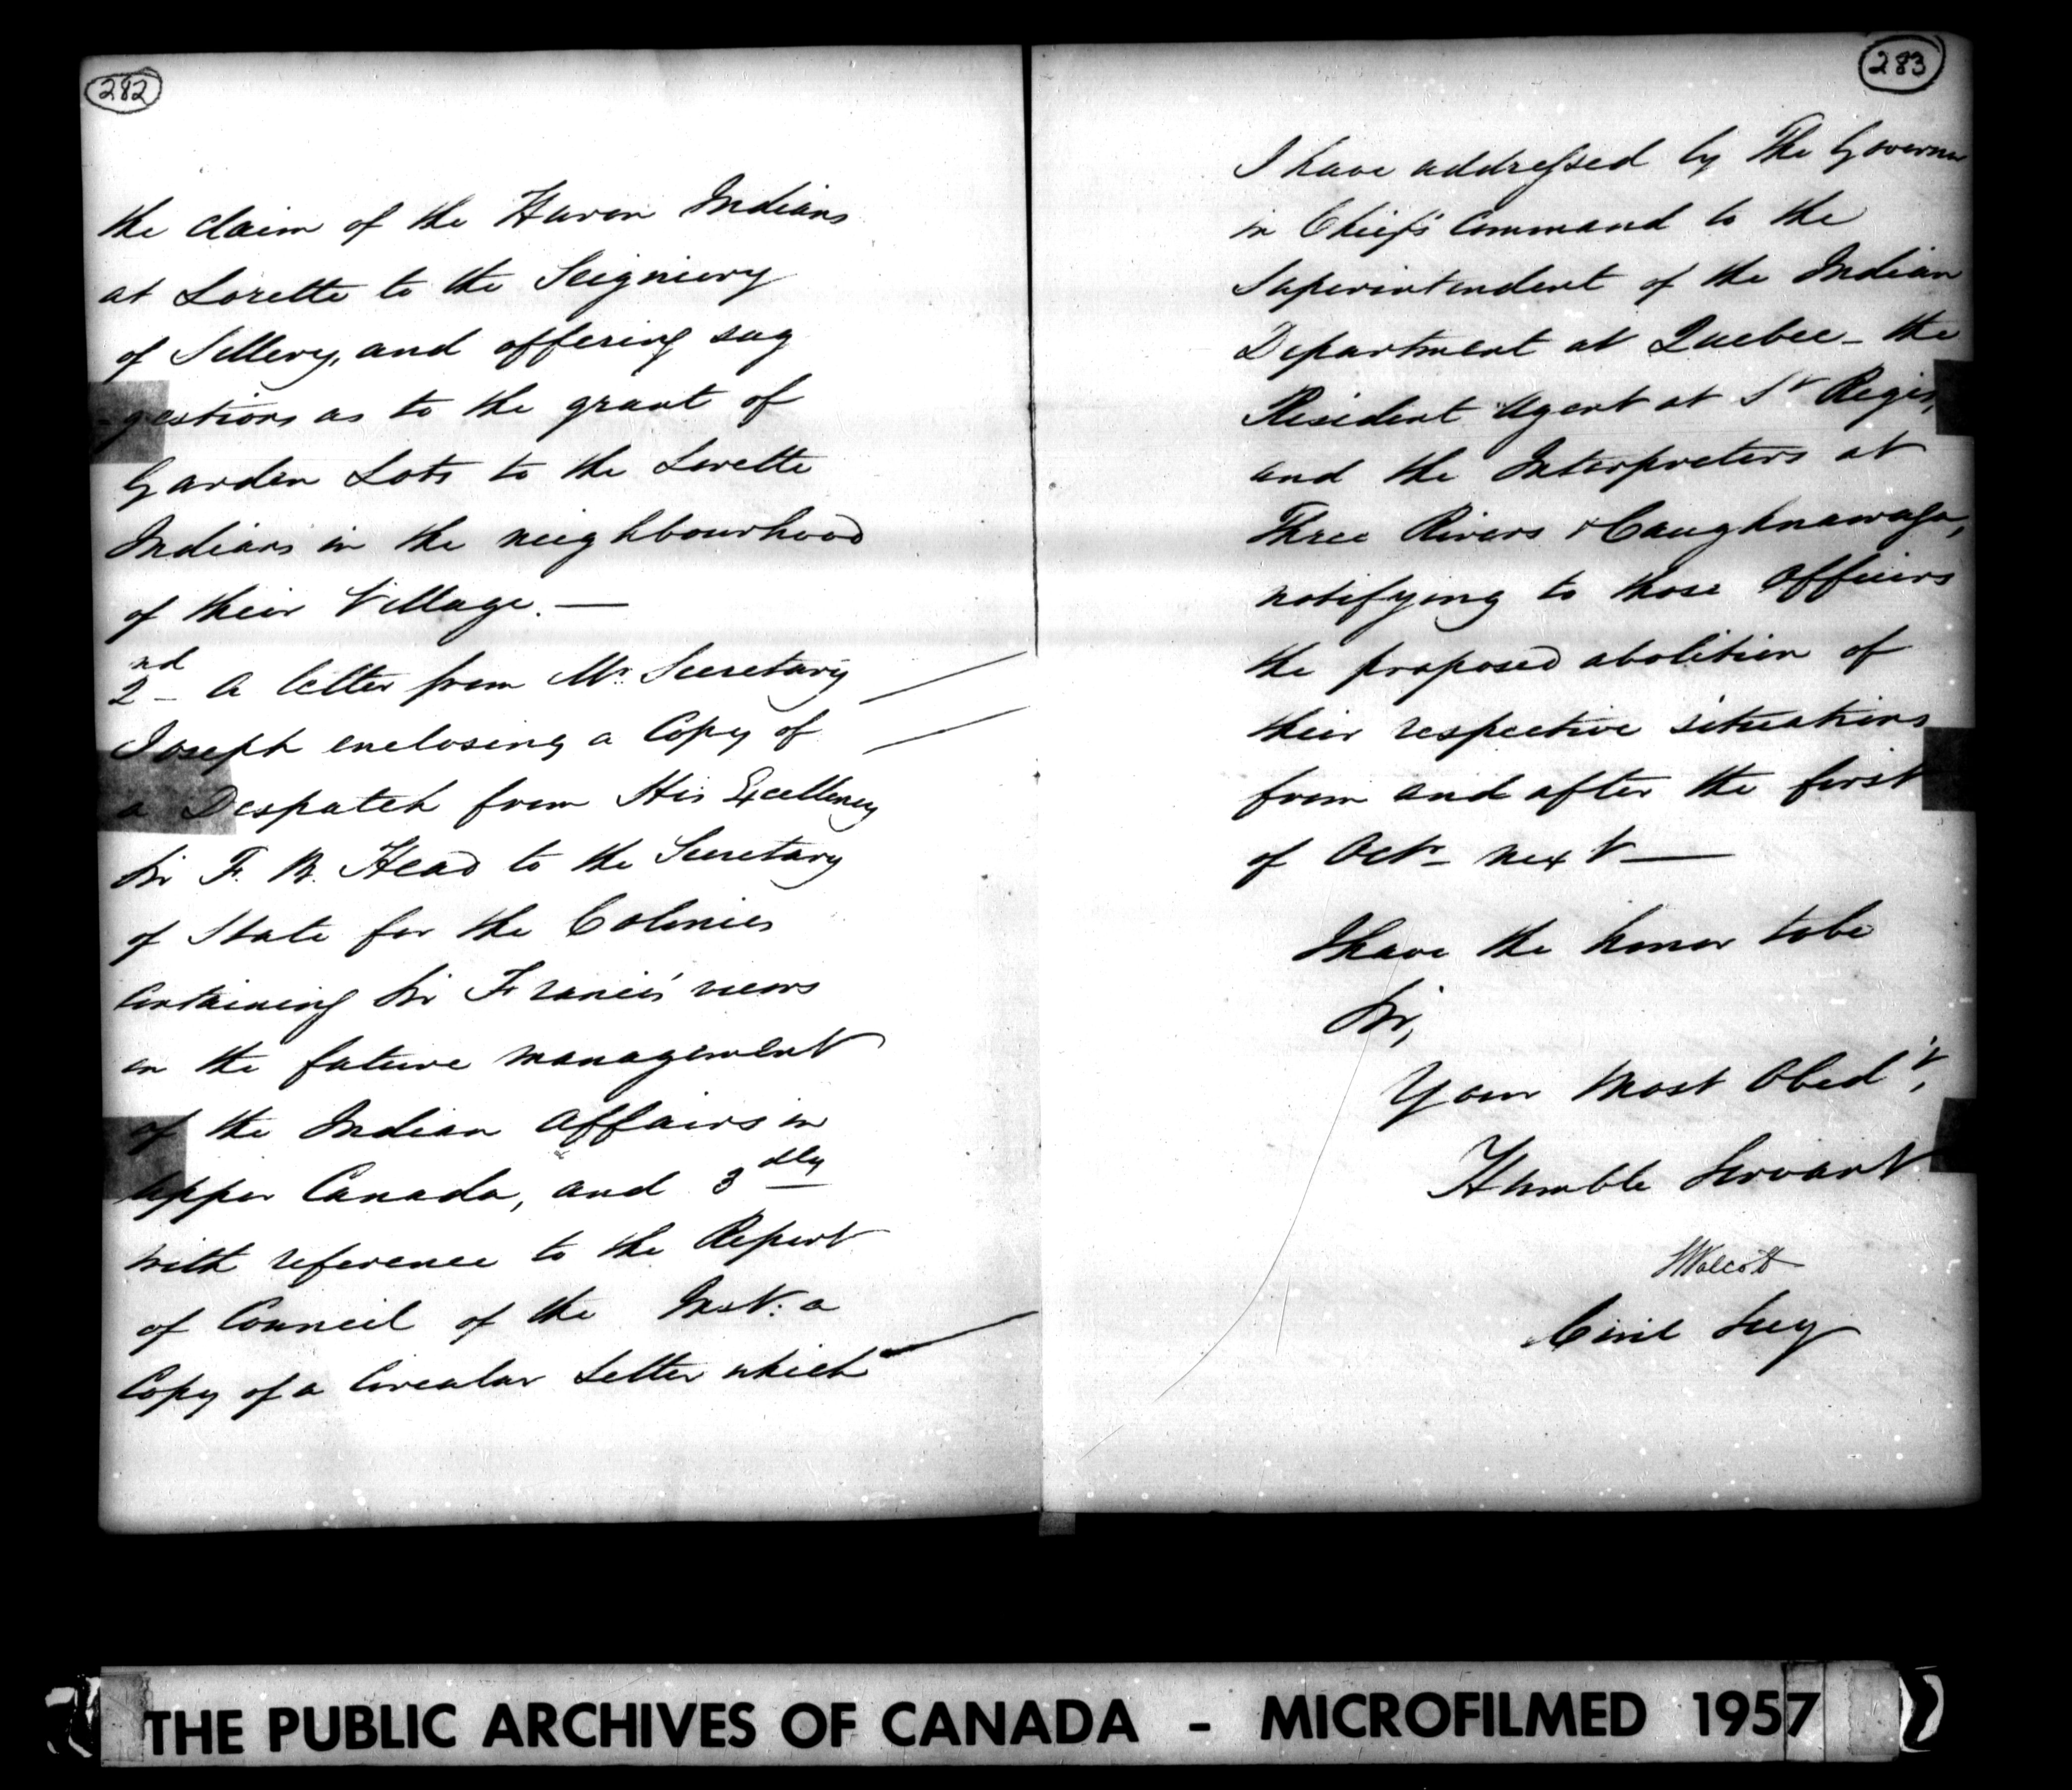 282
the claim of the Huron Indians
at Lorette to the Seigniory
of Sillery, and offering sug
-gestions as to the grant of
Garden Lots to the Lorette
Indians in the neighbourhood
of their Village. —
2nd A letter from Mr. Secretary
Joseph enclosing a Copy of
a Despatch from His Excellency
Sir F. B. Head to the Secretary
of State for the Colonies
Containing Sir Francis' views
on the future management
of the Indian Affairs in
Upper Canada, and 3dly
with reference to the Report
of Council of the Inst. a
Copy of a Circular Letter which
283
I have addressed by The Governor
in Chief's Command to the
Superintendent of the Indian
Department at Quebec - the
Resident Agent at St Regis,
and the Interpreters at
Three Rivers & Caughnawaga,
notifying to those Officers
the proposed abolition of
their respective situations
from and after the first
of Octr. next —
I have the honor to be
Sir,
Your Most Obedt,
Humble Servant
Walcott
Civil Secy
THE PUBLIC ARCHIVES OF CANADA - MICROFILMED 1957